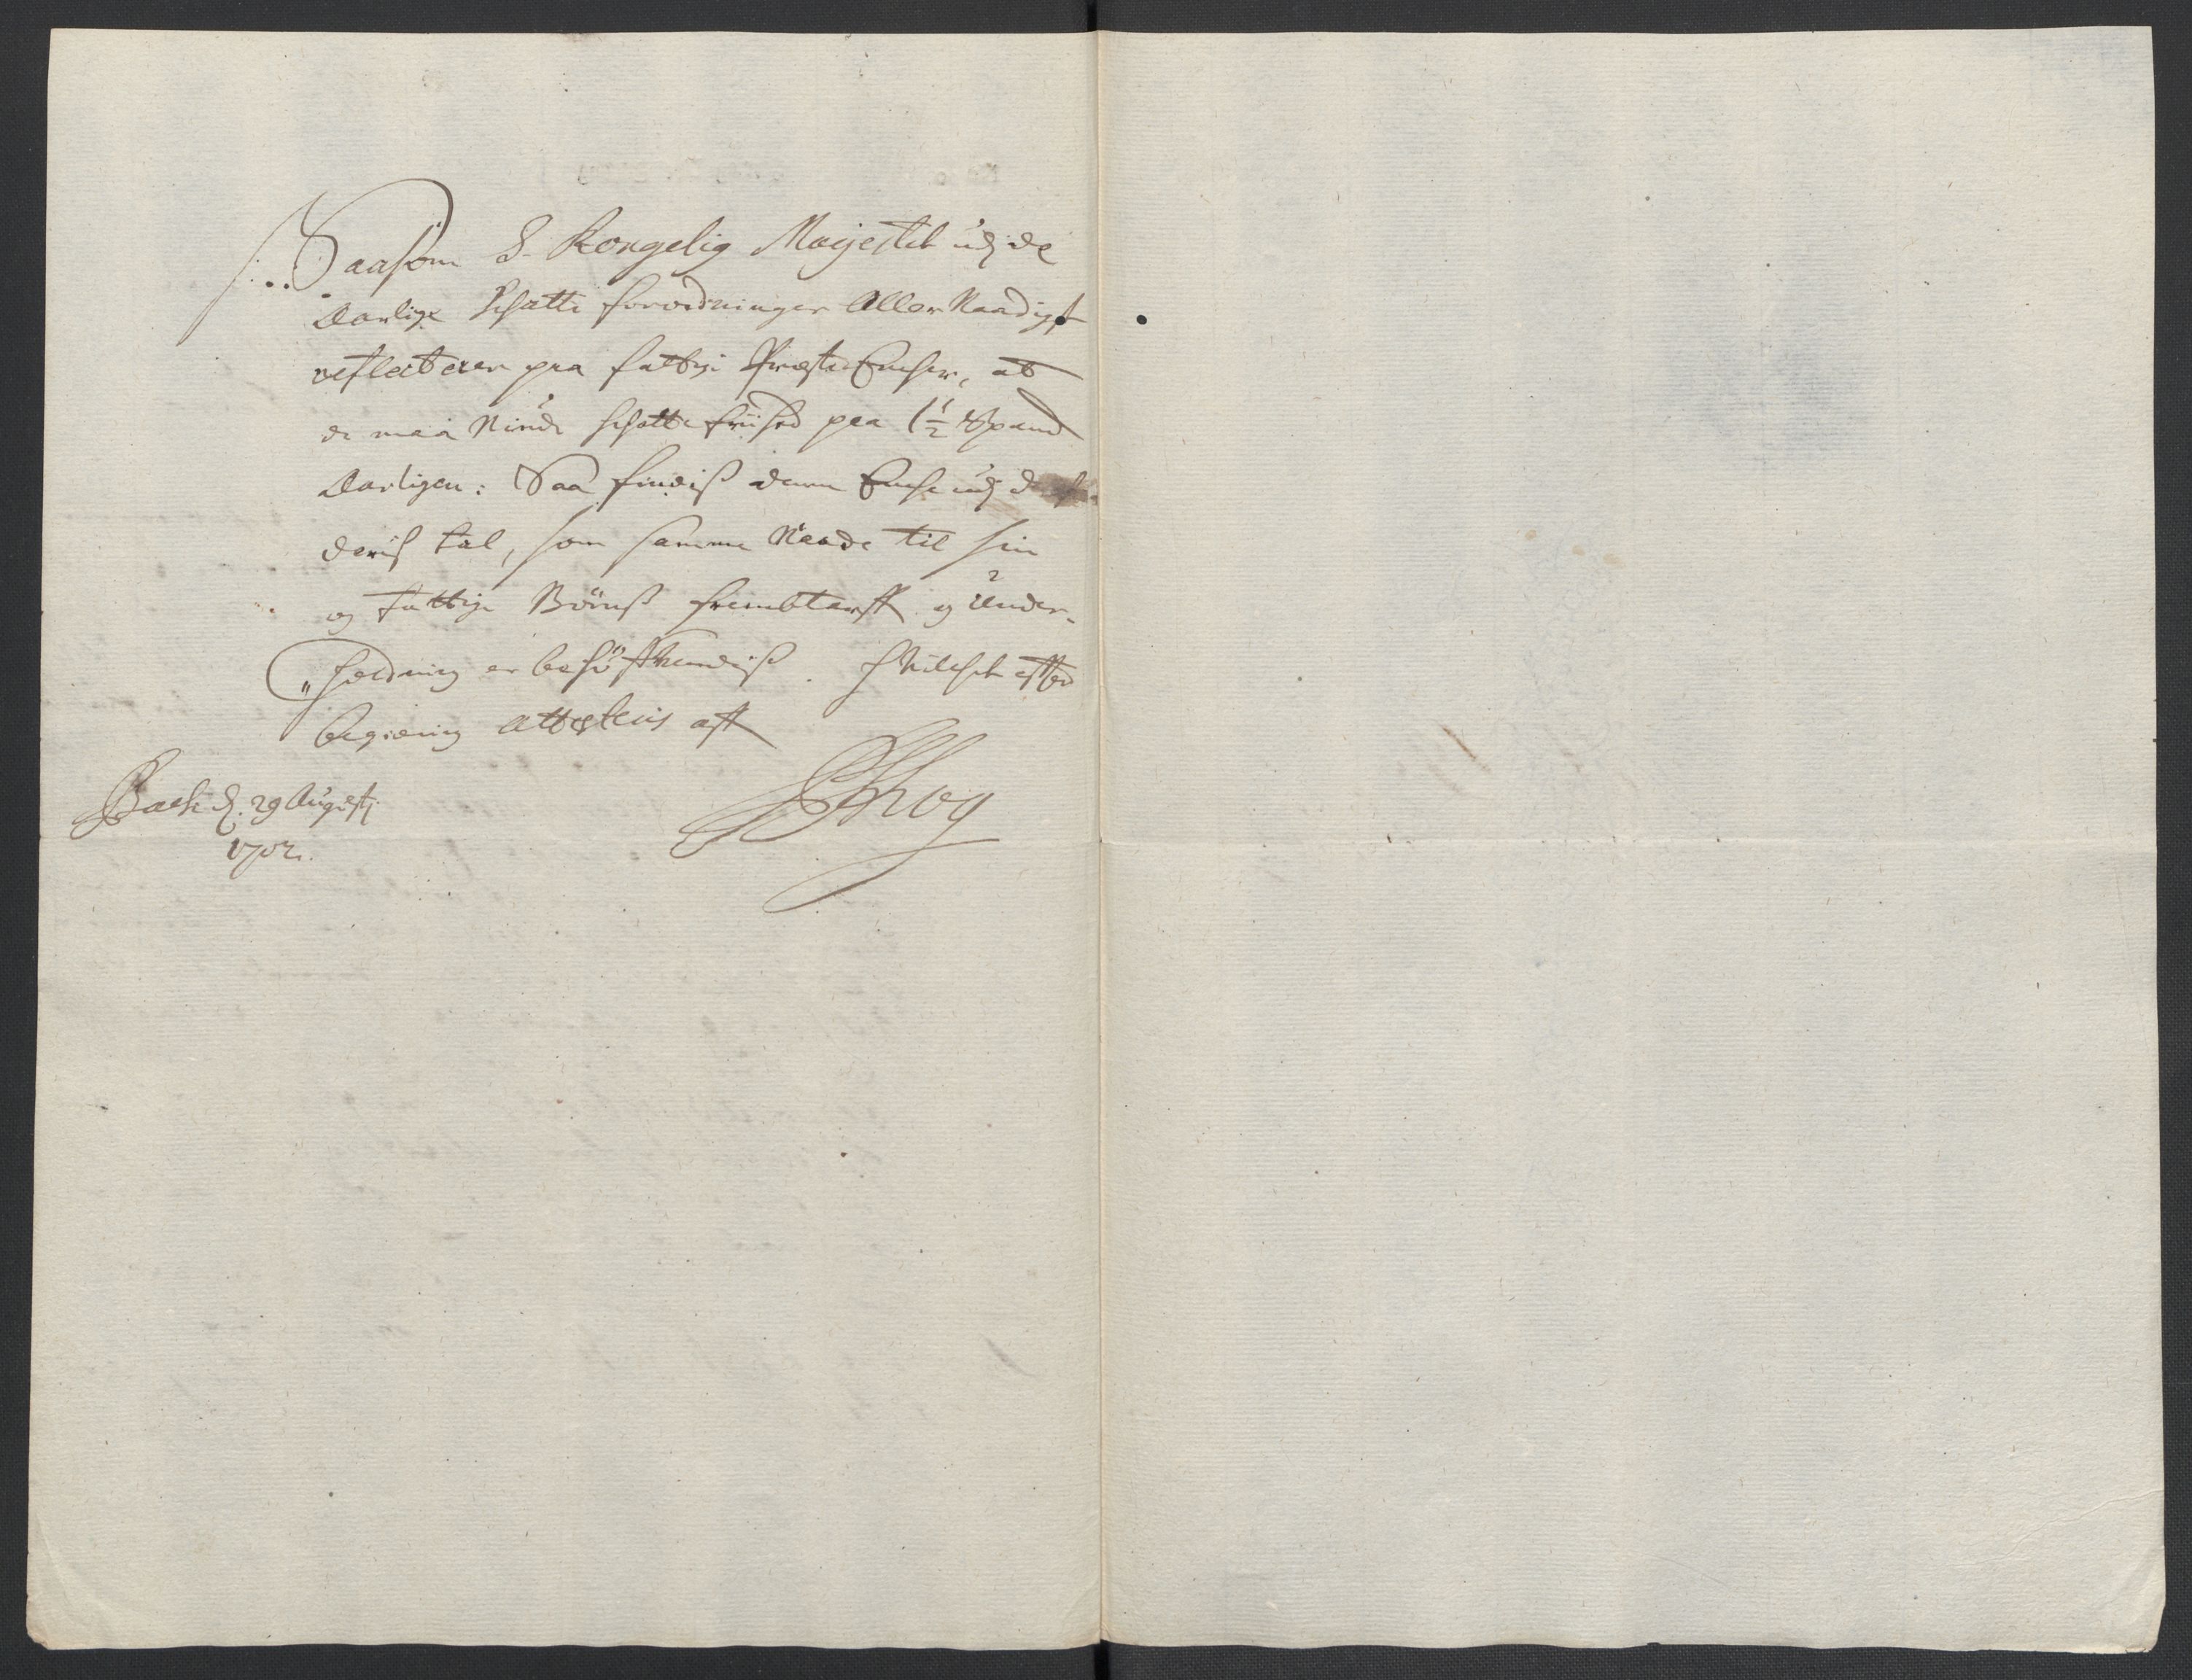 Saasom S. Kongelig Mayestet udj de
Aarlige Schatte forordninger Aller Naadigst
reflecterer paa fattige Præste Encher, at
de maa Niude schatte friihed paa 1 1/2 Spand
Aarligen: Saa findiß denne Enche udj
deris tal, som samme Naade til sin
og fattige Börnß frembtarff og Under-
holdning er behöfftrendiß. Hvilchet effter
begiering attesteris aff
Bach d. 29 Augustj
1702.